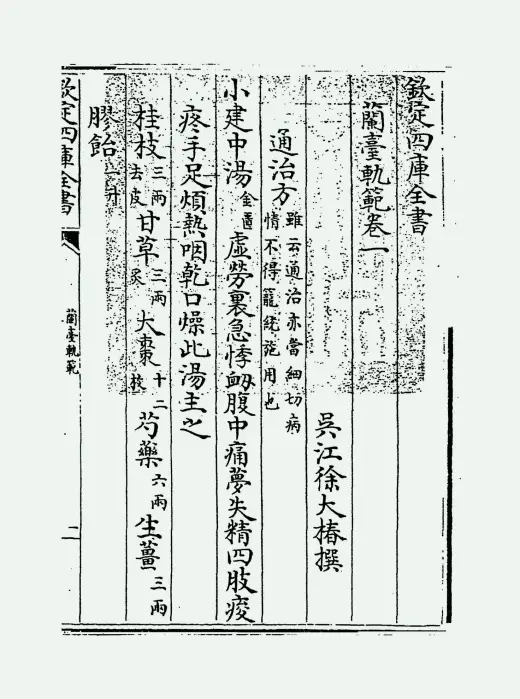 欽定四庫全書
蘭臺軌範卷一
吳江徐大椿撰
通治方雖云通治亦當細切病情不得籠統施用也
小建中湯金匱虛勞裏急悸衂腹中痛夢失精四肢痠
疼手足煩熱咽乾口燥此湯主之
桂枝三兩去皮甘草三兩炙大棗十二枚芍藥六兩生薑三兩
膠飴一升
欽定四庫全書
蘭臺軌範
二